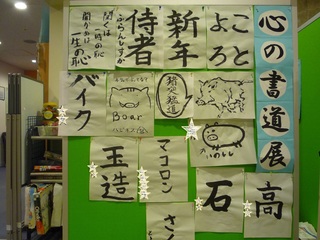 心の書道展
こと
よろ
新年
侍者
聞くは一時の恥
聞かぬは
一生の恥
バイク
Boar
猪突猛進
いのしし
玉造
マコロン
石
高